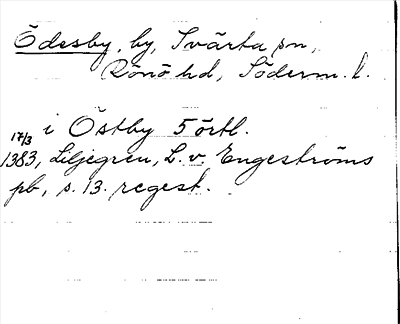 Ödesby, by, Svärta sn,
Rönö hd, Söderm. l.
i Östby 5 örtl.
17/3
1383, Liljegren, L. v. Engeströms
pb, s. 13. regest.